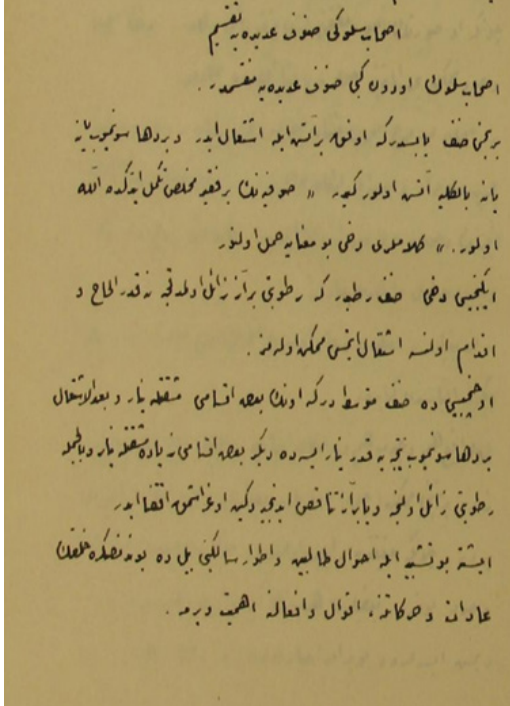 اصحاب سلوكى صنوف عديده يه تقسيم
اصحاب سلوك اودون كبى صنوف عديده يه منقسمدر .
برنجى صنف يابسدر كه اوفق بر آتش ايله اشتعال ايدر و بر دها سونميوب يانه
يانه بالكليه آتش اولور كيدر " صوفيه نك بر فقير مخلص تكمل ايتدكده الله
اولور . " كلاملرى دخى بو معنايه حمل اولنور
ايكنجيسى دخى صنف رطبدر كه رطوبتى بر آز زائل اولمدقجه نه قدر الحاح و
اقدام اولنسه اشتعال ايتمسى ممكن اوله مز .
اوچنجيسى ده صنف متوسطدر كه اونك بعض اقسامى مشقتله يانار و بعد الاشتعال
بر دها سونميوب نتيجه يه قدر يانار ايسه ده ديكر بعض اقسامى زياده مشقتله يانار و بالجمله
رطوبتى زائل اولنجه ويا بر آز تناقص ايدنجيه دكين اوغراشمق اقتضا ايدر
ايشته بو تشبيه ايله احوال طالبين و اطوار سالكينى بيل ده بوندنصكره خلقك
عادات و حركاتنه ، اقوال و افعالنه اهميت ويرمه .